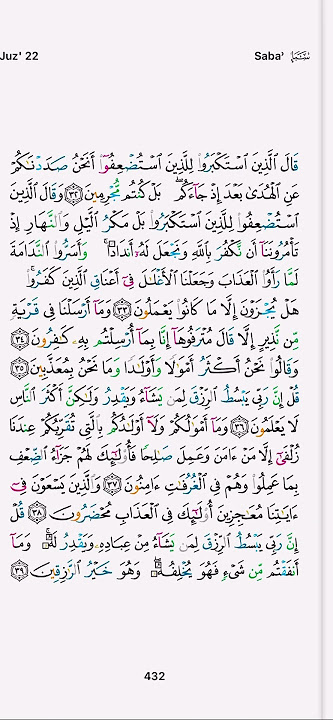 Juz' 22
Saba' سَبَإ
قَالَ ٱلَّذِينَ ٱسْتَكْبَرُوا۟ لِلَّذِينَ ٱسْتُضْعِفُوٓا۟ أَنَحْنُ صَدَدْنَـٰكُمْ
عَنِ ٱلْهُدَىٰ بَعْدَ إِذْ جَآءَكُم ۖ بَلْ كُنتُم مُّجْرِمِينَ ٣٢ وَقَالَ ٱلَّذِينَ
ٱسْتُضْعِفُوا۟ لِلَّذِينَ ٱسْتَكْبَرُوا۟ بَلْ مَكْرُ ٱلَّيْلِ وَٱلنَّهَارِ إِذْ
تَأْمُرُونَنَآ أَن نَّكْفُرَ بِٱللَّهِ وَنَجْعَلَ لَهُۥٓ أَندَادًا ۚ وَأَسَرُّوا۟ ٱلنَّدَامَةَ
لَمَّا رَأَوُا۟ ٱلْعَذَابَ وَجَعَلْنَا ٱلْأَغْلَـٰلَ فِىٓ أَعْنَاقِ ٱلَّذِينَ كَفَرُوا۟
هَلْ يُجْزَوْنَ إِلَّا مَا كَانُوا۟ يَعْمَلُونَ ٣٣ وَمَآ أَرْسَلْنَا فِى قَرْيَةٍ
مِّن نَّذِيرٍ إِلَّا قَالَ مُتْرَفُوهَآ إِنَّا بِمَآ أُرْسِلْتُم بِهِۦ كَـٰفِرُونَ ٣٤
وَقَالُوا۟ نَحْنُ أَكْثَرُ أَمْوَٰلًا وَأَوْلَـٰدًا وَمَا نَحْنُ بِمُعَذَّبِينَ ٣٥
قُلْ إِنَّ رَبِّى يَبْسُطُ ٱلرِّزْقَ لِمَن يَشَآءُ وَيَقْدِرُ وَلَـٰكِنَّ أَكْثَرَ ٱلنَّاسِ
لَا يَعْلَمُونَ ٣٦ وَمَآ أَمْوَٰلُكُمْ وَلَآ أَوْلَـٰدُكُم بِٱلَّتِى تُقَرِّبُكُمْ عِندَنَا
زُلْفَىٰٓ إِلَّا مَنْ ءَامَنَ وَعَمِلَ صَـٰلِحًا فَأُو۟لَـٰٓئِكَ لَهُمْ جَزَآءُ ٱلضِّعْفِ
بِمَا عَمِلُوا۟ وَهُمْ فِى ٱلْغُرُفَـٰتِ ءَامِنُونَ ٣٧ وَٱلَّذِينَ يَسْعَوْنَ فِىٓ
ءَايَـٰتِنَا مُعَـٰجِزِينَ أُو۟لَـٰٓئِكَ فِى ٱلْعَذَابِ مُحْضَرُونَ ٣٨ قُلْ
إِنَّ رَبِّى يَبْسُطُ ٱلرِّزْقَ لِمَن يَشَآءُ مِنْ عِبَادِهِۦ وَيَقْدِرُ لَهُۥ ۚ وَمَآ
أَنفَقْتُم مِّن شَىْءٍ فَهُوَ يُخْلِفُهُۥ ۖ وَهُوَ خَيْرُ ٱلرَّٰزِقِينَ ٣٩
432